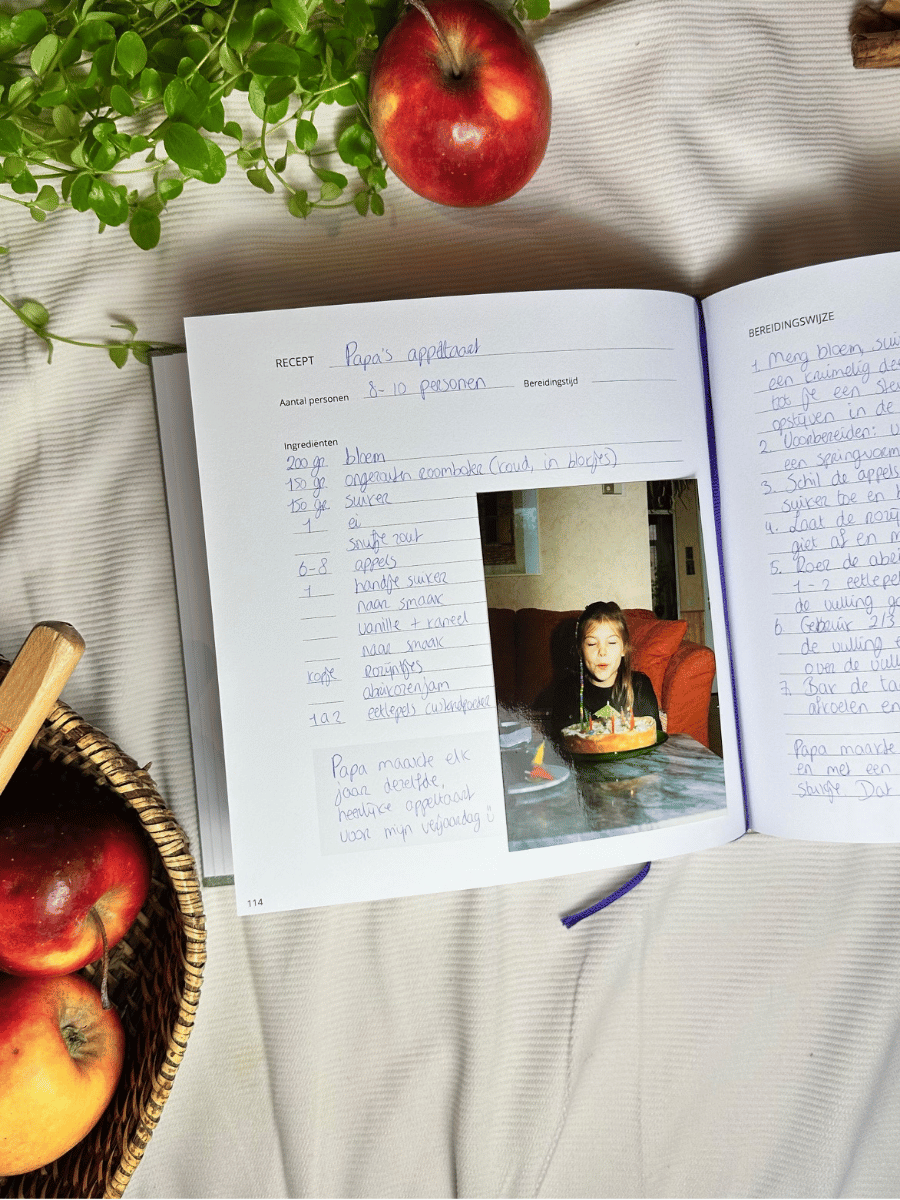 RECEPT Papa's appeltaart
Aantal personen 8-10 personen Bereidingstijd
Ingredienten
200 gr bloem
150 gr ongezouten roomboter (koud, in blokjes)
150 gr suiker
1 ei
snufje zout
6-8 appels
1 handje suiker
naar smaak
vanille + kaneel
naar smaak
kopje rozijntjes
abrikozenjam
1 a 2 eetlepels custardpoeder
Papa maakte elk
jaar dezelfde,
heerlijke appeltaart
voor mijn verjaardag
114
BEREIDINGSWIJZE
1. Meng bloem, sui
een kruimelig dee
tot je een
opstijven in de
2. Voorbereiden: 
een springvorm
3. Schil de appels
suiker toe en
4. Laat de rozij
giet af en m
5. Roer de abri
1-2 eetlepel
de vulling
6. Gebruik 2/3
de vulling
over de vull
7. Bak de ta
afkoelen en
Papa maakte
en met een
stukje. Dat